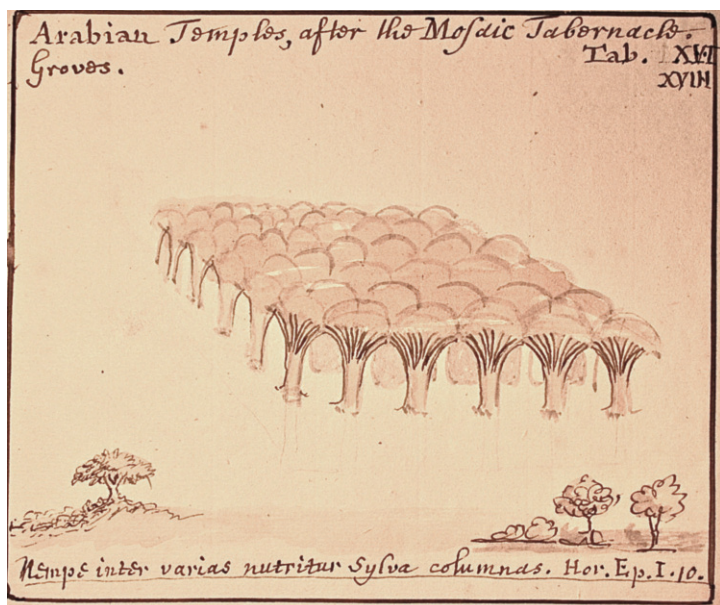 Arabian Temples, after the Mosaic Tabernacle.
Groves.
Tab. XVI
XVIII
Nempe inter varias nutritur Sylva columnas. Hor. Ep. I. 10.